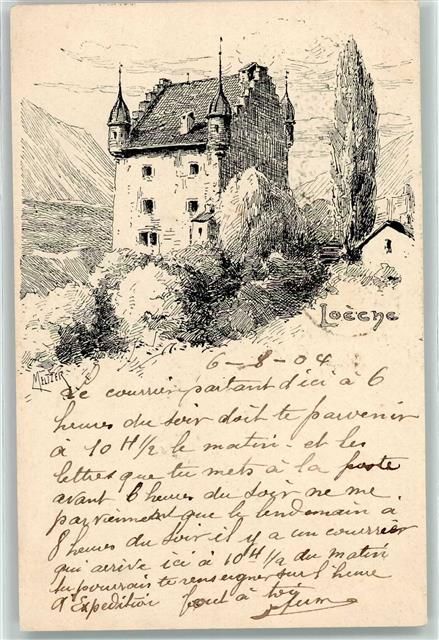 Loèche
MELTZER
6-8-04
Le courrier partant d'ici à 6
heures du soir doit te parvenir
à 10 H 1/2 le matin. et les
lettres que tu mets à la poste
avant 6 heures du soir ne me
parviennent que le lendemain à
8 heures du soir il y a un courrier
qui arrive ici à 10 H 1/2 du matin
tu pourrais te renseigner sur l'heure
d'Expédition tout à toi